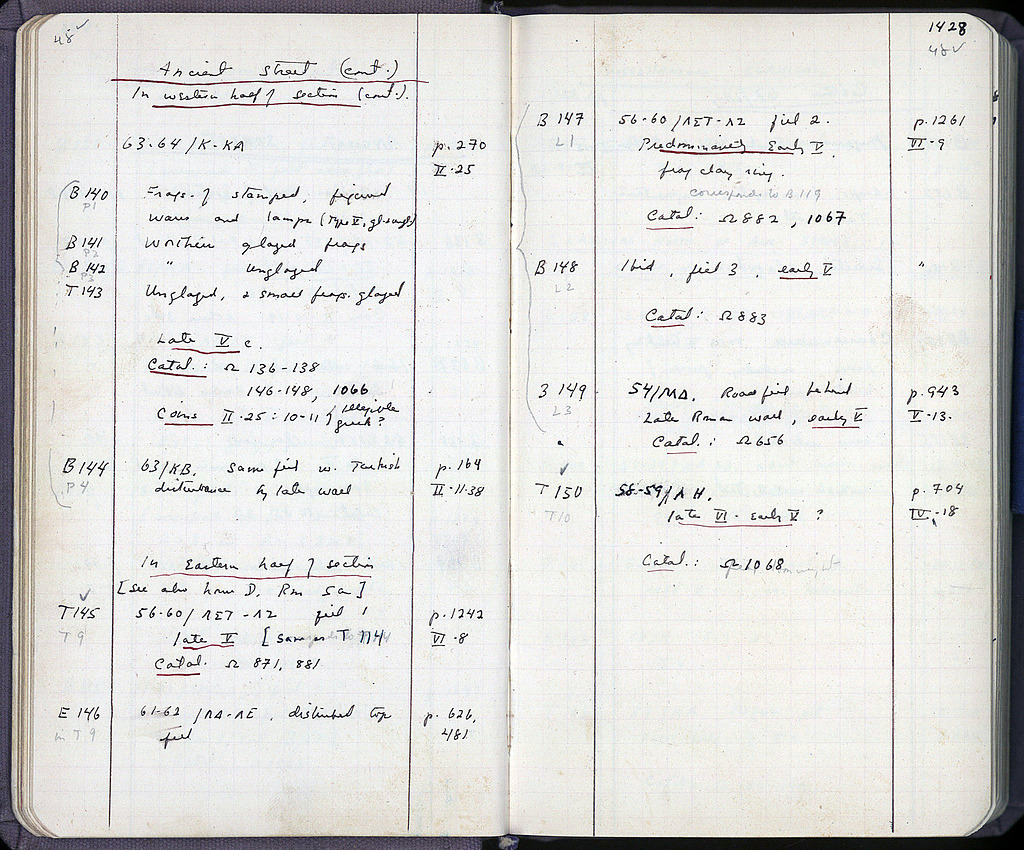 48 ✓
Ancient Street (cont.)
In western half of section (cont.).
63-64/K-KA p. 270
II-25
B 140 Frags. of stamped, figured
P1
wares and lamps (Type V, gl.
B 141 Worthier glazed frags
P2
B 142 " unglazed
P3
T 143 Unglazed, 2 small frags. glazed
Late V c.
Catal.: Ω 136-138
146-148, 1066
Coins II-25: 10-11 { illegible
greek?
B 144 63/KB. Same fill w. Turkish p. 164
P 4 disturbance by late wall II-11-38
In Eastern half of section
[see also house D, Rm 5a]
✓
T 145 56-60/ΛΣΤ-ΛΖ fill 1 p. 1242
T 9 late V [same as T 114 VI-8
Catal. Ω 871, 881
E 146 61-62/ΛΔ-ΛΕ. disturbed top p. 626,
in T 9 fill 481
1428
48 ✓
B 147 56-60/ΛΣΤ-ΛΖ fill 2. p. 1261
L1 Predominantly Early V VI-9
frag clay ring.
corresponds to B 119
Catal: Ω 882, 1067
B 148 Ibid, fill 3, early V "
L2
Catal: Ω 883
B 149 54/ΜΔ. Road fill behind p. 943
L3 Late Roman wall, early V V-13-
Catal.: Ω 656
✓
T 150 58-59/ΛH. p. 704
T10 late VI - early V ? IV-18
Catal.: Ω 1068